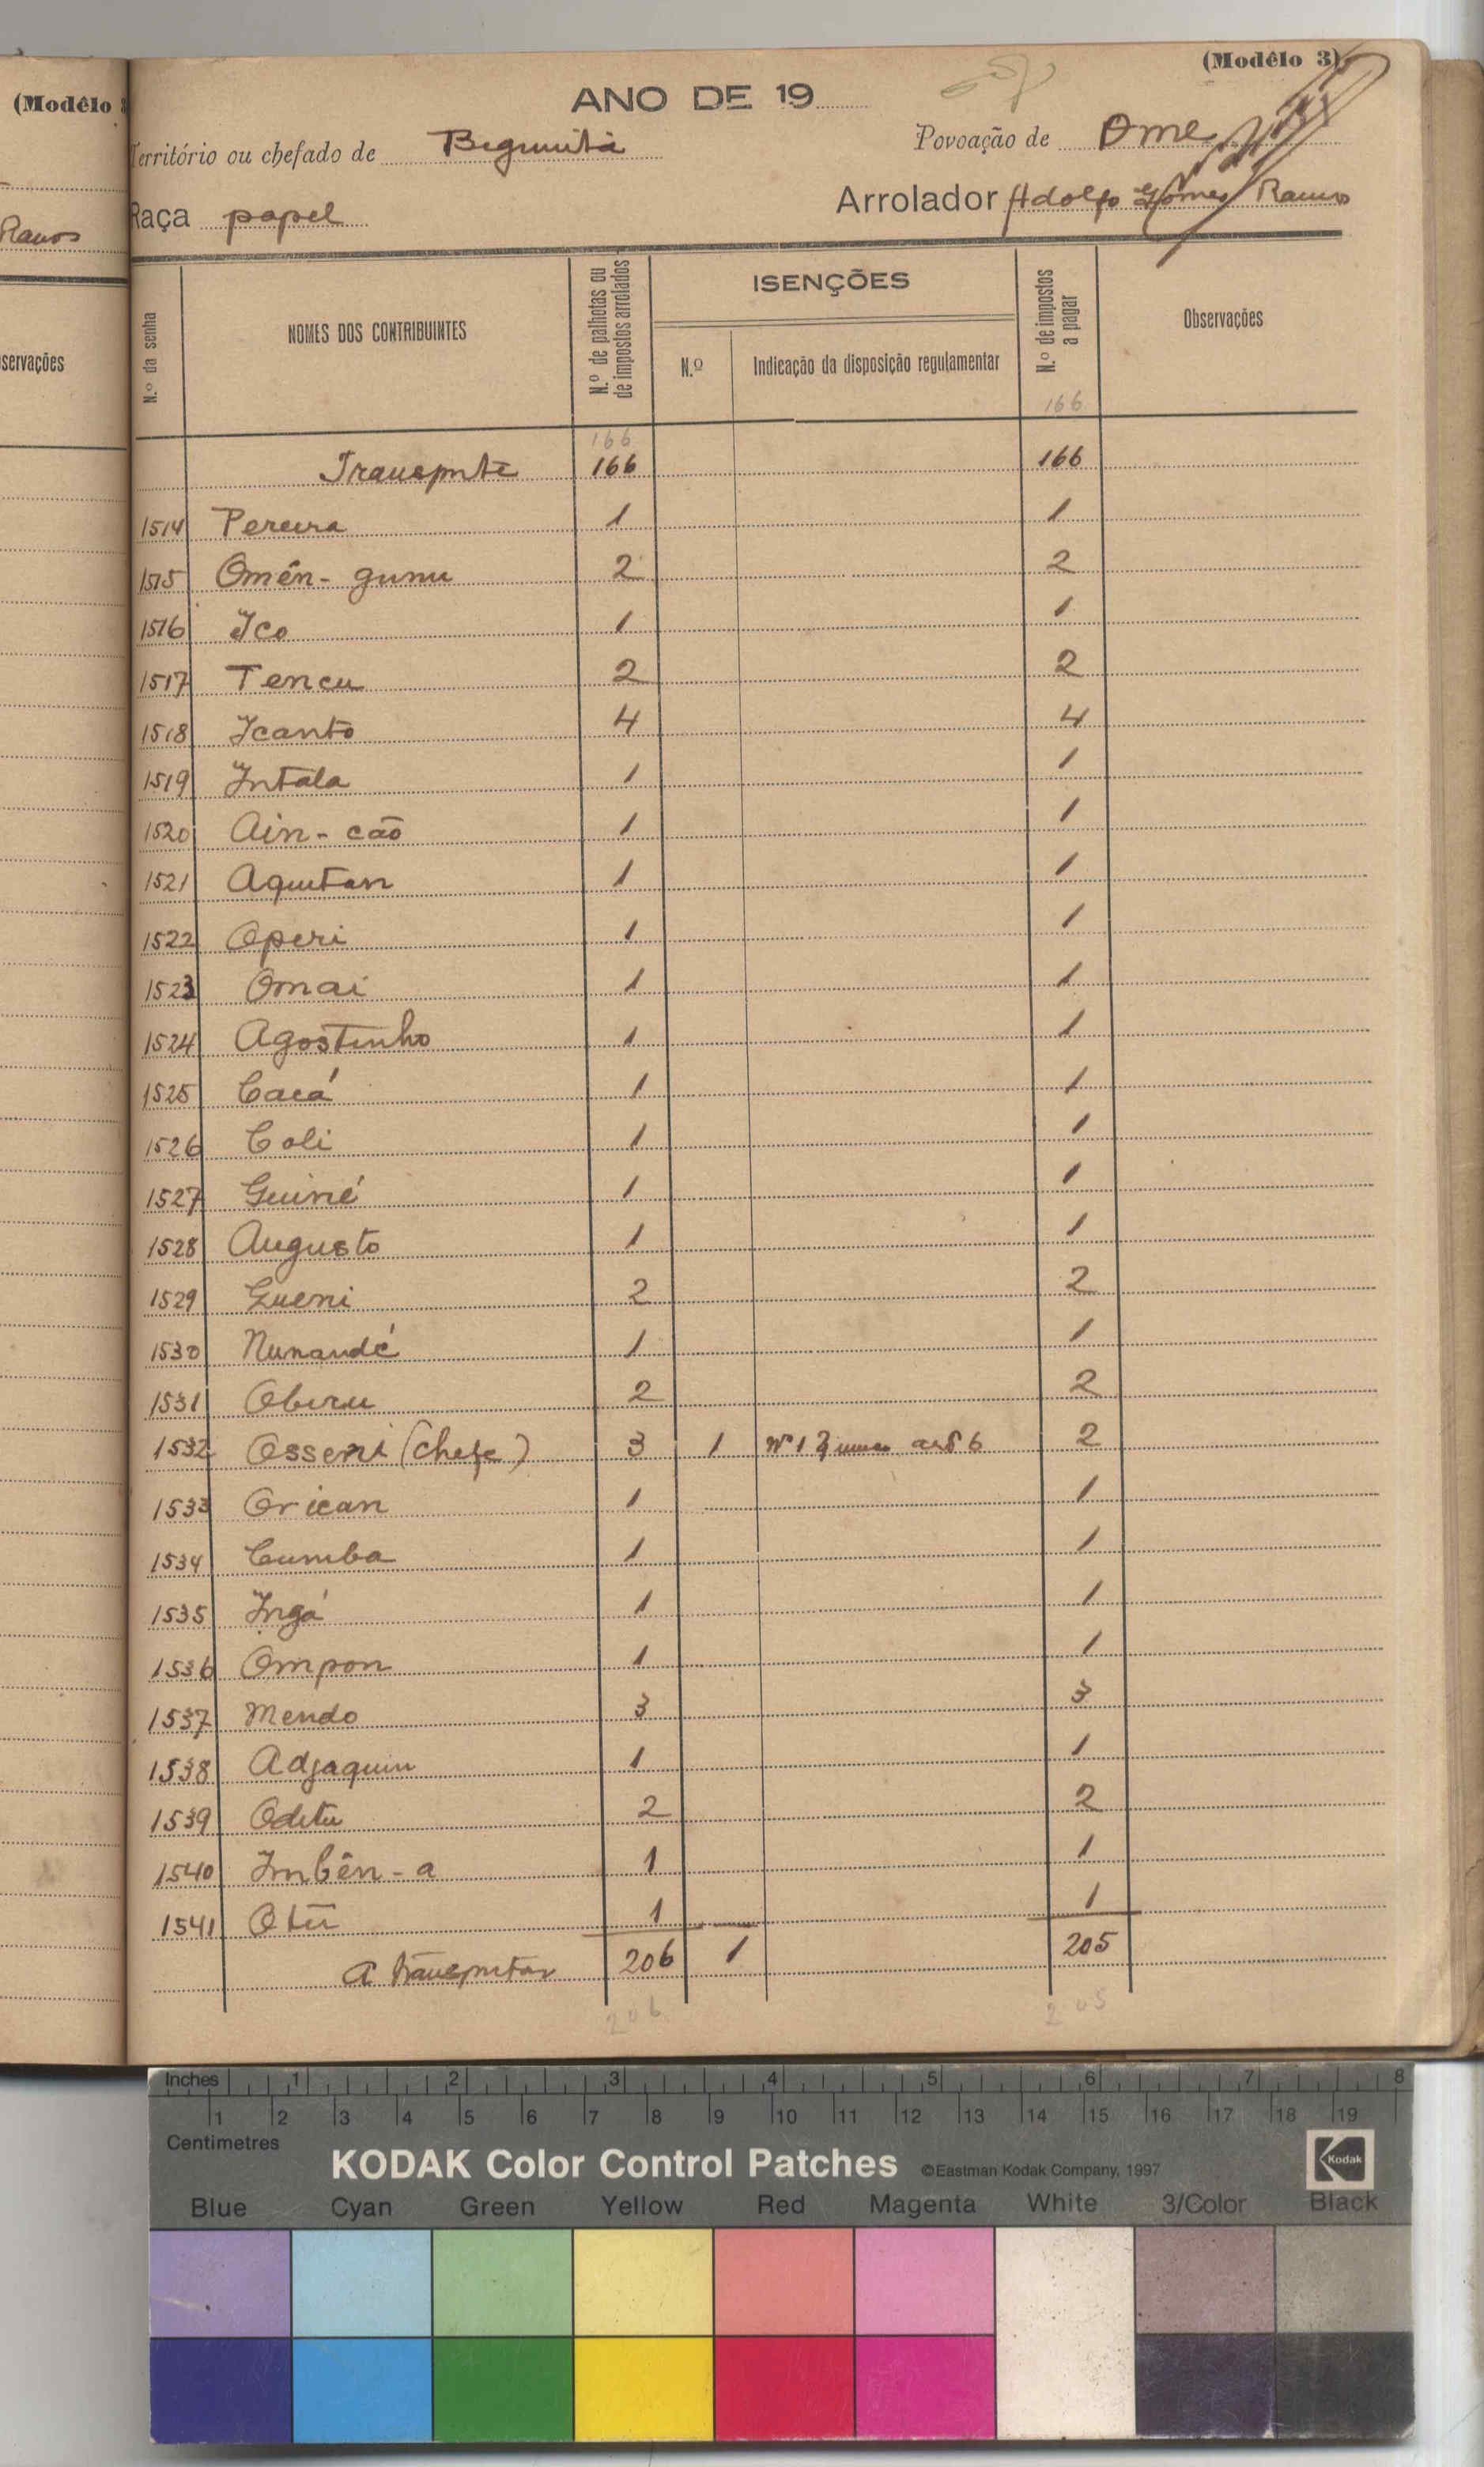 (Modêlo 3
Ramos
servações
(Modêlo 3)
ANO DE 19
Território ou chefado de Biguimita
Povoação de Ome
Raça papel
Arrolador Adolfo Gomes Ramos
N.º da senha
NOMES DOS CONTRIBUINTES
N.º de palhotas ou de impostos arrolados
ISENÇÕES
N.º
Indicação da disposição regulamentar
N.º de impostos a pagar
Observações
166
166
Transporte 166 166
1514 Pereira 1 1
1515 Omên-gunu 2 2
1516 Ico 1 1
1517 Tencu 2 2
1518 Icanto 4 4
1519 Intala 1 1
1520 Ain-cão 1 1
1521 Aquitan 1 1
1522 Operi 1 1
1523 Omai 1 1
1524 Agostinho 1 1
1525 Cacá 1 1
1526 Coli 1 1
1527 Guiné 1 1
1528 Augusto 1 1
1529 Gueni 2 2
1530 Nunandé 1 1
1531 Obiru 2 2
1532 Osseni (Chefe) 3 1 Nº 1 2
1533 Orican 1 1
1534 Cumba 1 1
1535 Ingá 1 1
1536 Ompon 1 1
1537 Mendo 3 3
1538 Adjaquin 1 1
1539 Oditu 2 2
1540 Imbên-a 1 1
1541 Otu 1 1
A transportar 206 1 205
206 205
Inches 1 2 3 4 5 6 7 8
1 2 3 4 5 6 7 8 9 10 11 12 13 14 15 16 17 18 19
Centimetres
KODAK Color Control Patches ©Eastman Kodak Company, 1997 Kodak
Blue Cyan Green Yellow Red Magenta White 3/Color Black